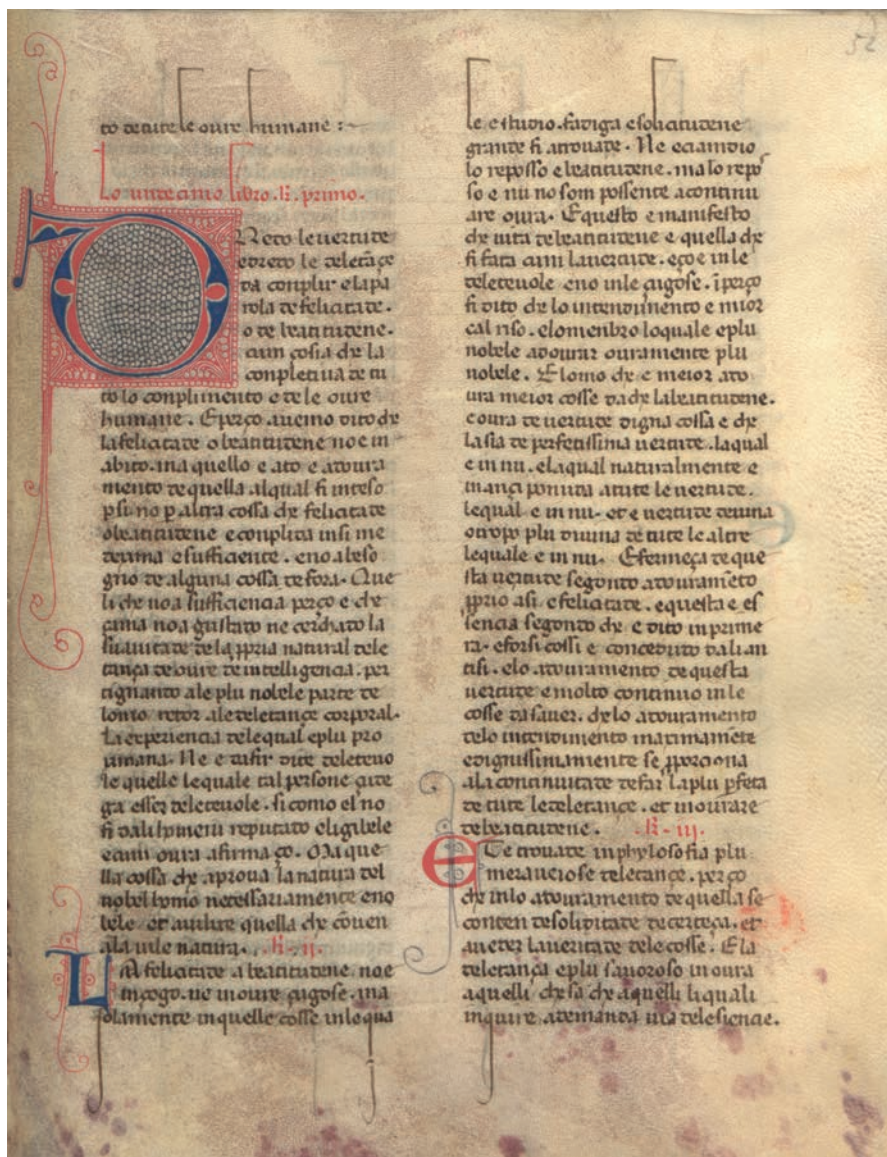 52
to de tute le ovre humane :~
Lo undecimo libro. R. primo.
Dito le vertute
e dreto le deletãçe
da conplir e la pa
rola de felicitate.
o de beatitudene.
cum cosia che la
conpletiva de tu
to lo conplimento e de le ovre
humane. E perço avemo dito che
la felicitate o beatitudene no e in
abito. ma quello e ato e adovra
mento de quella al qual fi inteso
p si no p altra cossa che felicitate
o beatitudene e conplita in si me
dexima e sufficiente. e no a beso
gno de alguna cossa de fora. Que
li che no a sufficiencia perço e che
çama no a gustato ne cerchato la
suavitate de la ppria natural dele
tança de ovre de intelligencia. per
tignando a le plu nobele parte de
lomo retor a le deletançe corporal.
La experiencia de le qual e plu pro
ximana. Ne e da fir dite deletevo
le quelle le quale tal persone çude
ga esser deletevole. si como el no
fi dali homeni reputato eligibele
e cum ovra afirma ço. Ma que
lla cossa che aprova la natura del
nobel homo necessariamente e no
bele. et avilire quella che cõven
a la vile natura. R. ii.
LA felicitate a beatitudene. no e
in çogo. ne in ovre çugose. ma
solamente in quelle cosse in le qua
le e studio. fadiga e solicitudene
grande fi atrovade. Ne eciamdio
lo reposso e beatitudene. ma lo repo
so e nu no som possente a continu
are ovra. E questo e manifesto
che vita de beatitudene e quella che
fi fata cum la vertute. e ço e in le
deletevole e no in le çugose. i perço
fi dito che lo intendimento e mior
cal riso. e lo menbro lo quale e plu
nobele adovrar ovramente plu
nobele. E lomo che e meior ado
vra meior cosse da che la beatitudene.
e ovra de vertute digna cossa e che
la sia de perfetissima vertute. la qual
e in nu. e la qual naturalmente e
inançi ponuda a tute le vertute.
le qual e in nu. et e vertute devina
o tropo plu divina de tute le altre
le quale e in nu. E fermeça de que
sta vertute segondo adovramẽto
pprio a si e felicitate. e questa e es
sencia segondo che e dito in prime
ra. e forsi cossi e conceduto dali an
tisi. e lo adovramento de questa
vertute e molto continuo in le
cosse da saver. che lo adovramento
de lo intendimento maximamẽte
e dignissimamente se pporciona
a la continuitate de far la plu pfeta
de tute le deletançe. et in ovrare
de beatitudene. R. iii.
ETe trovate in phylosofia plu
meraveiose deletançe. perço
che in lo adovramento de quella se
conten de soliditate de certeça. et
aveder la veritate de le cosse. E la
deletança e plu savoroso in ovra
a quelli che sa che a quelli li quali
inquire ademanda via de le siencie.